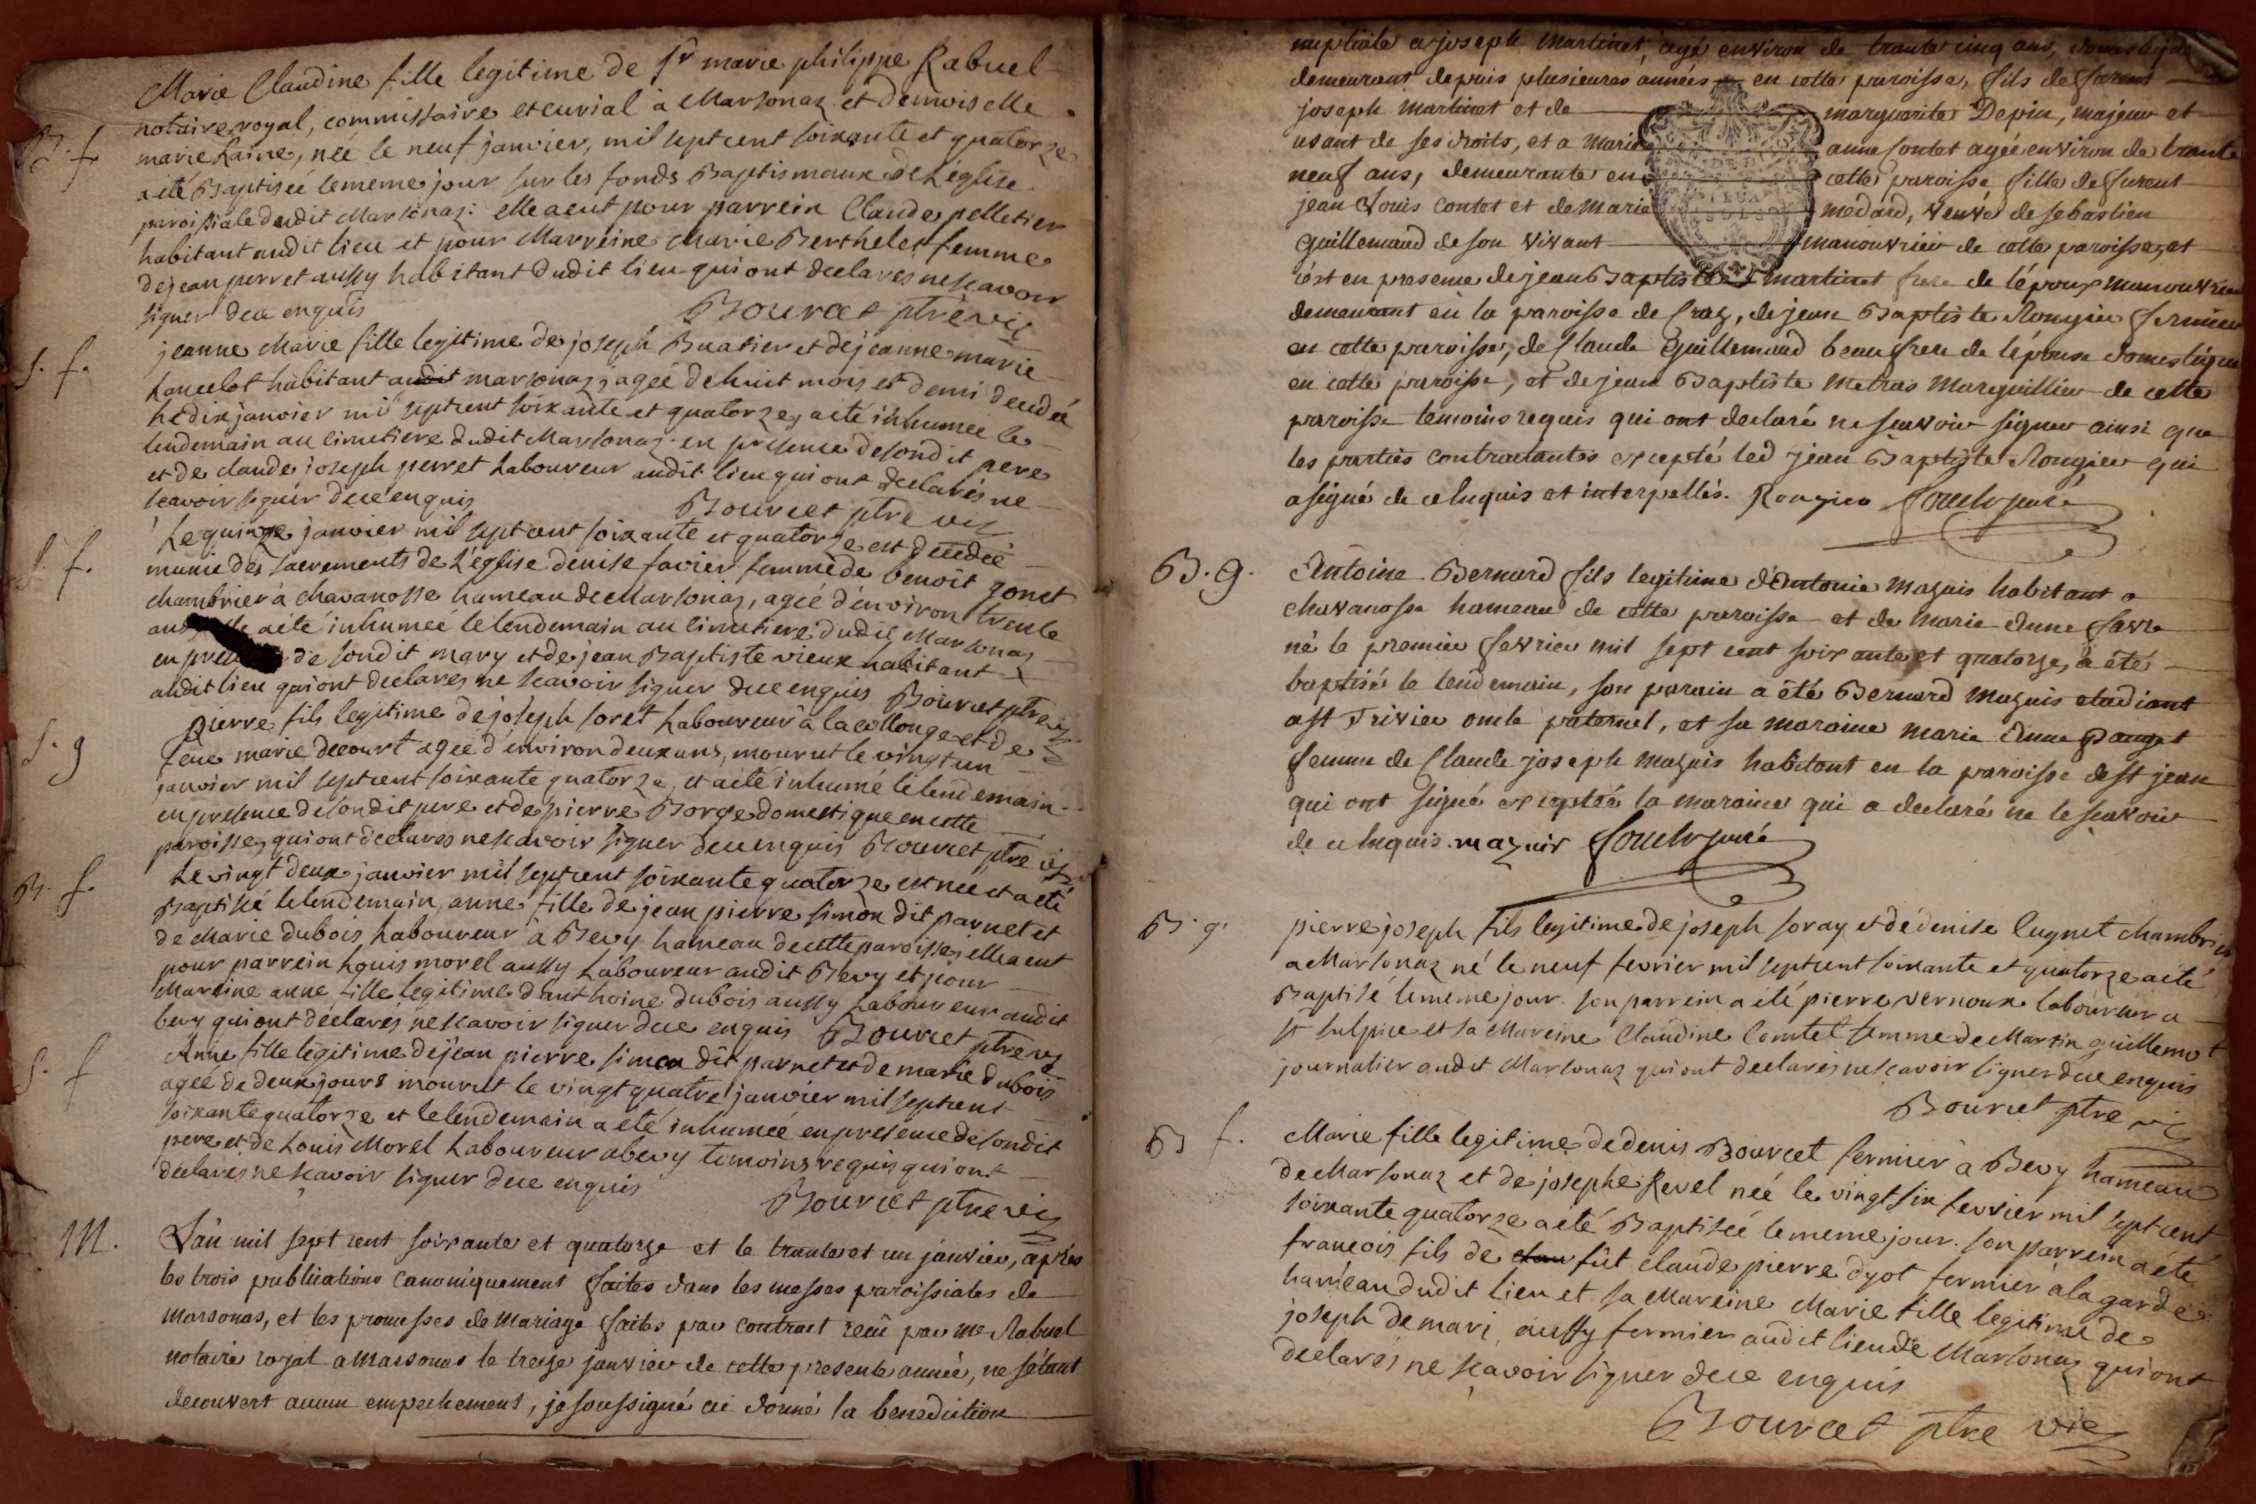 B. f.
Marie Claudine fille legitime de Sr marie philippe Rabuel
notaire royal, commissaire et curial à Marsonaz et demoiselle
marie haine, née le neuf janvier, mil sept cent soixante et quatorze
a été Baptisée le meme jour sur les fonds Baptismaux de L'église
paroissiale dudit Marsonaz: elle a eut pour parrein Claude pelletier
habitant audit lieu et pour Marreine Marie Berthelet femme
de jean perret aussy habitant dudit lieu qui ont declarés ne scavoir
signer due enquis Bourcet ptre vic
S. f.
jeanne Marie fille legitime de joseph Buatier et de jeanne marie
Lancelot habitant audit marsonaz, agée de huit mois et demi decedée
le dix janvier mil sept cent soixante et quatorze, a été inhumée le
lendemain au cimetiere dudit Marsonaz en presence de sondit pere
et de claude joseph perret Laboureur audit lieu qui ont declarés ne
scavoir signer due enquis Bourcet ptre vic
S. f.
Le quinze janvier mil sept cent soixante et quatorze est decedée
munie des sacrements de L'église denise favier femme de benoit gonet
chambrier à chavanosse hameau de Marsonaz, agée d'environ trente
ans, elle a été inhumée le lendemain au cimetiere dudit Marsonaz
en de sondit mary et de jean Baptiste vieux habitant
audit lieu qui ont declarés ne scavoir signer due enquis Bourcet ptre vic
S. g
pierre fils legitime de joseph soret Laboureur à la collonge et de
feue marie decourt agée d'environ deux ans, mourut le vingt un
janvier mil sept cent soixante quatorze, et a été inhumé le lendemain
en presence de sondit pere et de pierre Borge domestique en cette
paroisse, qui ont declarés ne scavoir signer due enquis Bourcet ptre vic
B. f.
Le vingt deux janvier mil sept cent soixante quatorze est née et a été
Baptisée le lendemain, anne fille de jean pierre simon dit parnet et
de Marie dubois Laboureur à Bevy hameau de cette paroisse, elle a eut
pour parrein Louis morel aussy Laboureur audit Bevy et pour
Mareine anne fille legitime d'anthoine dubois aussy Laboureur audit
bevy qui ont déclarés ne scavoir signer due enquis Bourcet ptre vic
S. f
Anne fille legitime de jean pierre simon dit parnet et de marie dubois
agée de deux jours mourut le vingt quatre janvier mil sept cent
soixante quatorze et le lendemain a été inhumée en presence de sondit
pere et de Louis Morel Laboureur a bevy temoins requis qui ont
declarés ne scavoir signer due enquis
Bourcet ptre vic
M.
L'an mil sept cent soixante et quatorze et le trante et un janvier, après
les trois publications canoniquement faites dans les messes paroissiales de
marsonas, et les promesses de mariage faites par contract reçu par me Rabuel
notaire royal a marsonas le treize janvier de cette presente année, ne s'étant
decouvert aucun empechement, je soussigné ai donné la benediction
nuptiale a joseph martinet, agé environ de trante cinq ans, domestique
demeurant depuis plusieures années en cette paroisse, fils de furent
joseph martinet et de marguerite Depin, majeur et
usant de ses droits, et a marie anne contet agée environ de trante
neuf ans, demeurante en cette paroisse fille de furent
jean Louis contet et de marie medard, veuve de sebastien
guillemaud de son vivant manouvrier de cette paroisse, et
c'est en presence de jean Baptiste martinet frere de l'époux manouvrier
demeurant en la paroisse de Craz, de jean Baptiste Rougier fermier
en cette paroisse, de Claude Guillemaud beaufrere de l'épouse domestique
en cette paroisse, et de jean Baptiste metras marguillier de cette
paroisse temoins requis qui ont declaré ne sçavoir signer ainsi que
les parties contractantes excepté led jean Baptiste Rougier qui
a signé de ce enquis et interpellés. Rougier
B. g.
Antoine Bernard fils legitime d'Antoine mazuis habitant a
chavanosse hameau de cette paroisse et de marie anne favre
né le premier fevrier mil sept cent soixante et quatorze, a été
baptisé le lendemain, son parain a été Bernard mazuis etudiant
a st Trivier oncle paternel, et sa maraine marie anne pauget
femme de Claude joseph mazuis habitant en la paroisse de st jean
qui ont signé exceptée la maraine qui a declaré ne le sçavoir
de ce enquis. mazuir
B. g.
pierre joseph fils legitime de joseph soray et de denise lugnet chambrier
a Marsonaz né le neuf fevrier mil sept cent soixante et quatorze a été
Baptisé le meme jour. son parrein a été pierre vernoux laboureur a
st sulpice et sa Mareine Claudine Comtet femme de Martin guillemot
journalier audit Marsonaz qui ont declarés ne scavoir signer due enquis
Bourcet ptre vic
B f.
Marie fille legitime de denis Bourcet fermier à Bevy hameau
de Marsonaz et de josephe Revel née le vingt six fevrier mil sept cent
soixante quatorze a été Baptisée le meme jour. son parrein a été
francois fils de fût claude pierre dyot fermier à la garde
hameau dudit lieu et sa Mareine Marie fille legitime de
joseph de mari, aussy fermier audit lieu de Marsonaz qui ont
declarés ne scavoir signer due enquis
Bourcet ptre vic